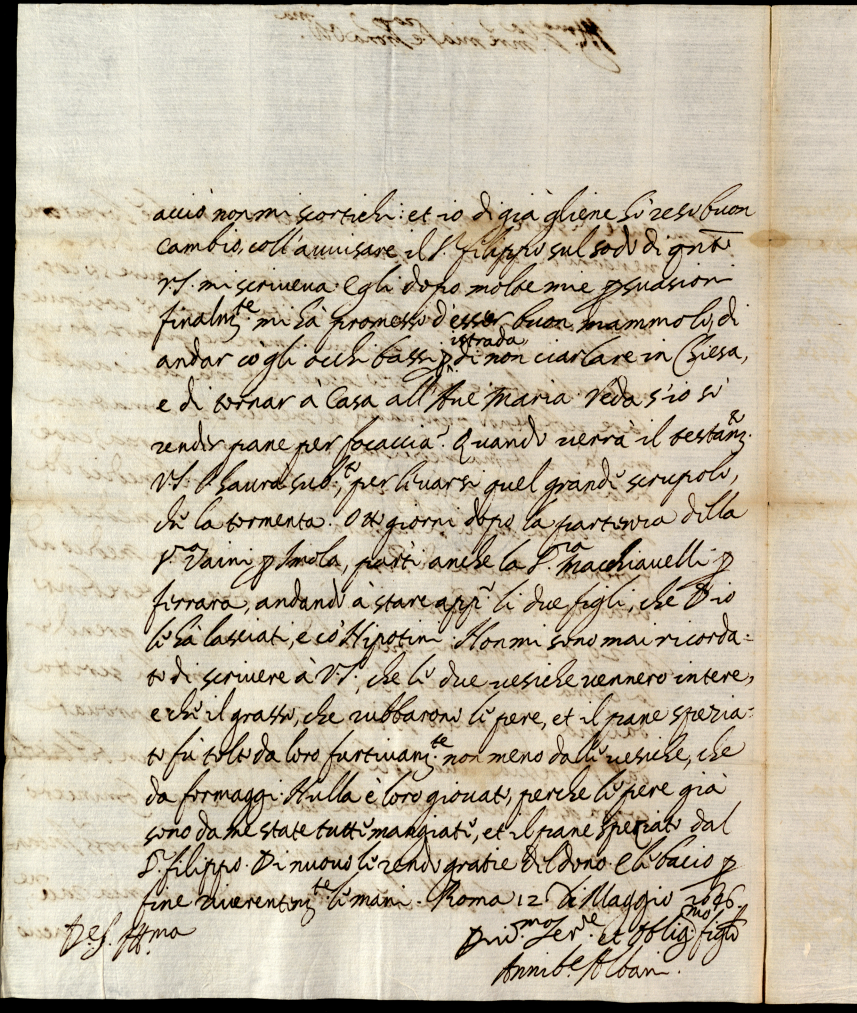 acciò non mi scortichi: et io di già gliene hò reso buon
cambio, coll'auuisare il S.r Filippo sul sodo di q.nto
V.S. mi scriueua. Egli dopo molte mie p suasioni
finalm.te mi hà promesso d'esser buon mammolo, di
andar cogli occhi bassi p istrada di non ciarlare in Chiesa,
e di tornar à Casa all'Aue Maria. Veda s'io sò
render pane per focaccia. Quando uerrà il testam.to
V.S. l'haurà sub.to, per leuarsi quel grande scrupolo,
che la tormenta. Otto giorni dopo la partenza della
S.ra Vaini p Imola, partì anche la S.ra Macchiauelli p
Ferrara, andando à stare app.o li due figli, che Dio
le hà lasciati, e co' Nipotini. Non mi sono mai ricorda=
to di scriuere à V.S., che le due uesiche uennero intere,
e che il grasso, che rubbarono le pere, et il pane spezia=
to fù tolto da loro furtiuam.te non meno dalle uesiche, che
da formaggi. Nulla è loro giouato, perche le pere già
sono da me state tutte mangiate, et il pane speziato dal
S.r Filippo. Di nuouo le rendo gratie del dono. E le bacio p
fine riuerentem.te le mani. Roma 12 di Maggio 1696
Di V.S. Ill.ma
Diu.mo Ser.re et Oblig.mo figlio
Annib.e Albani.